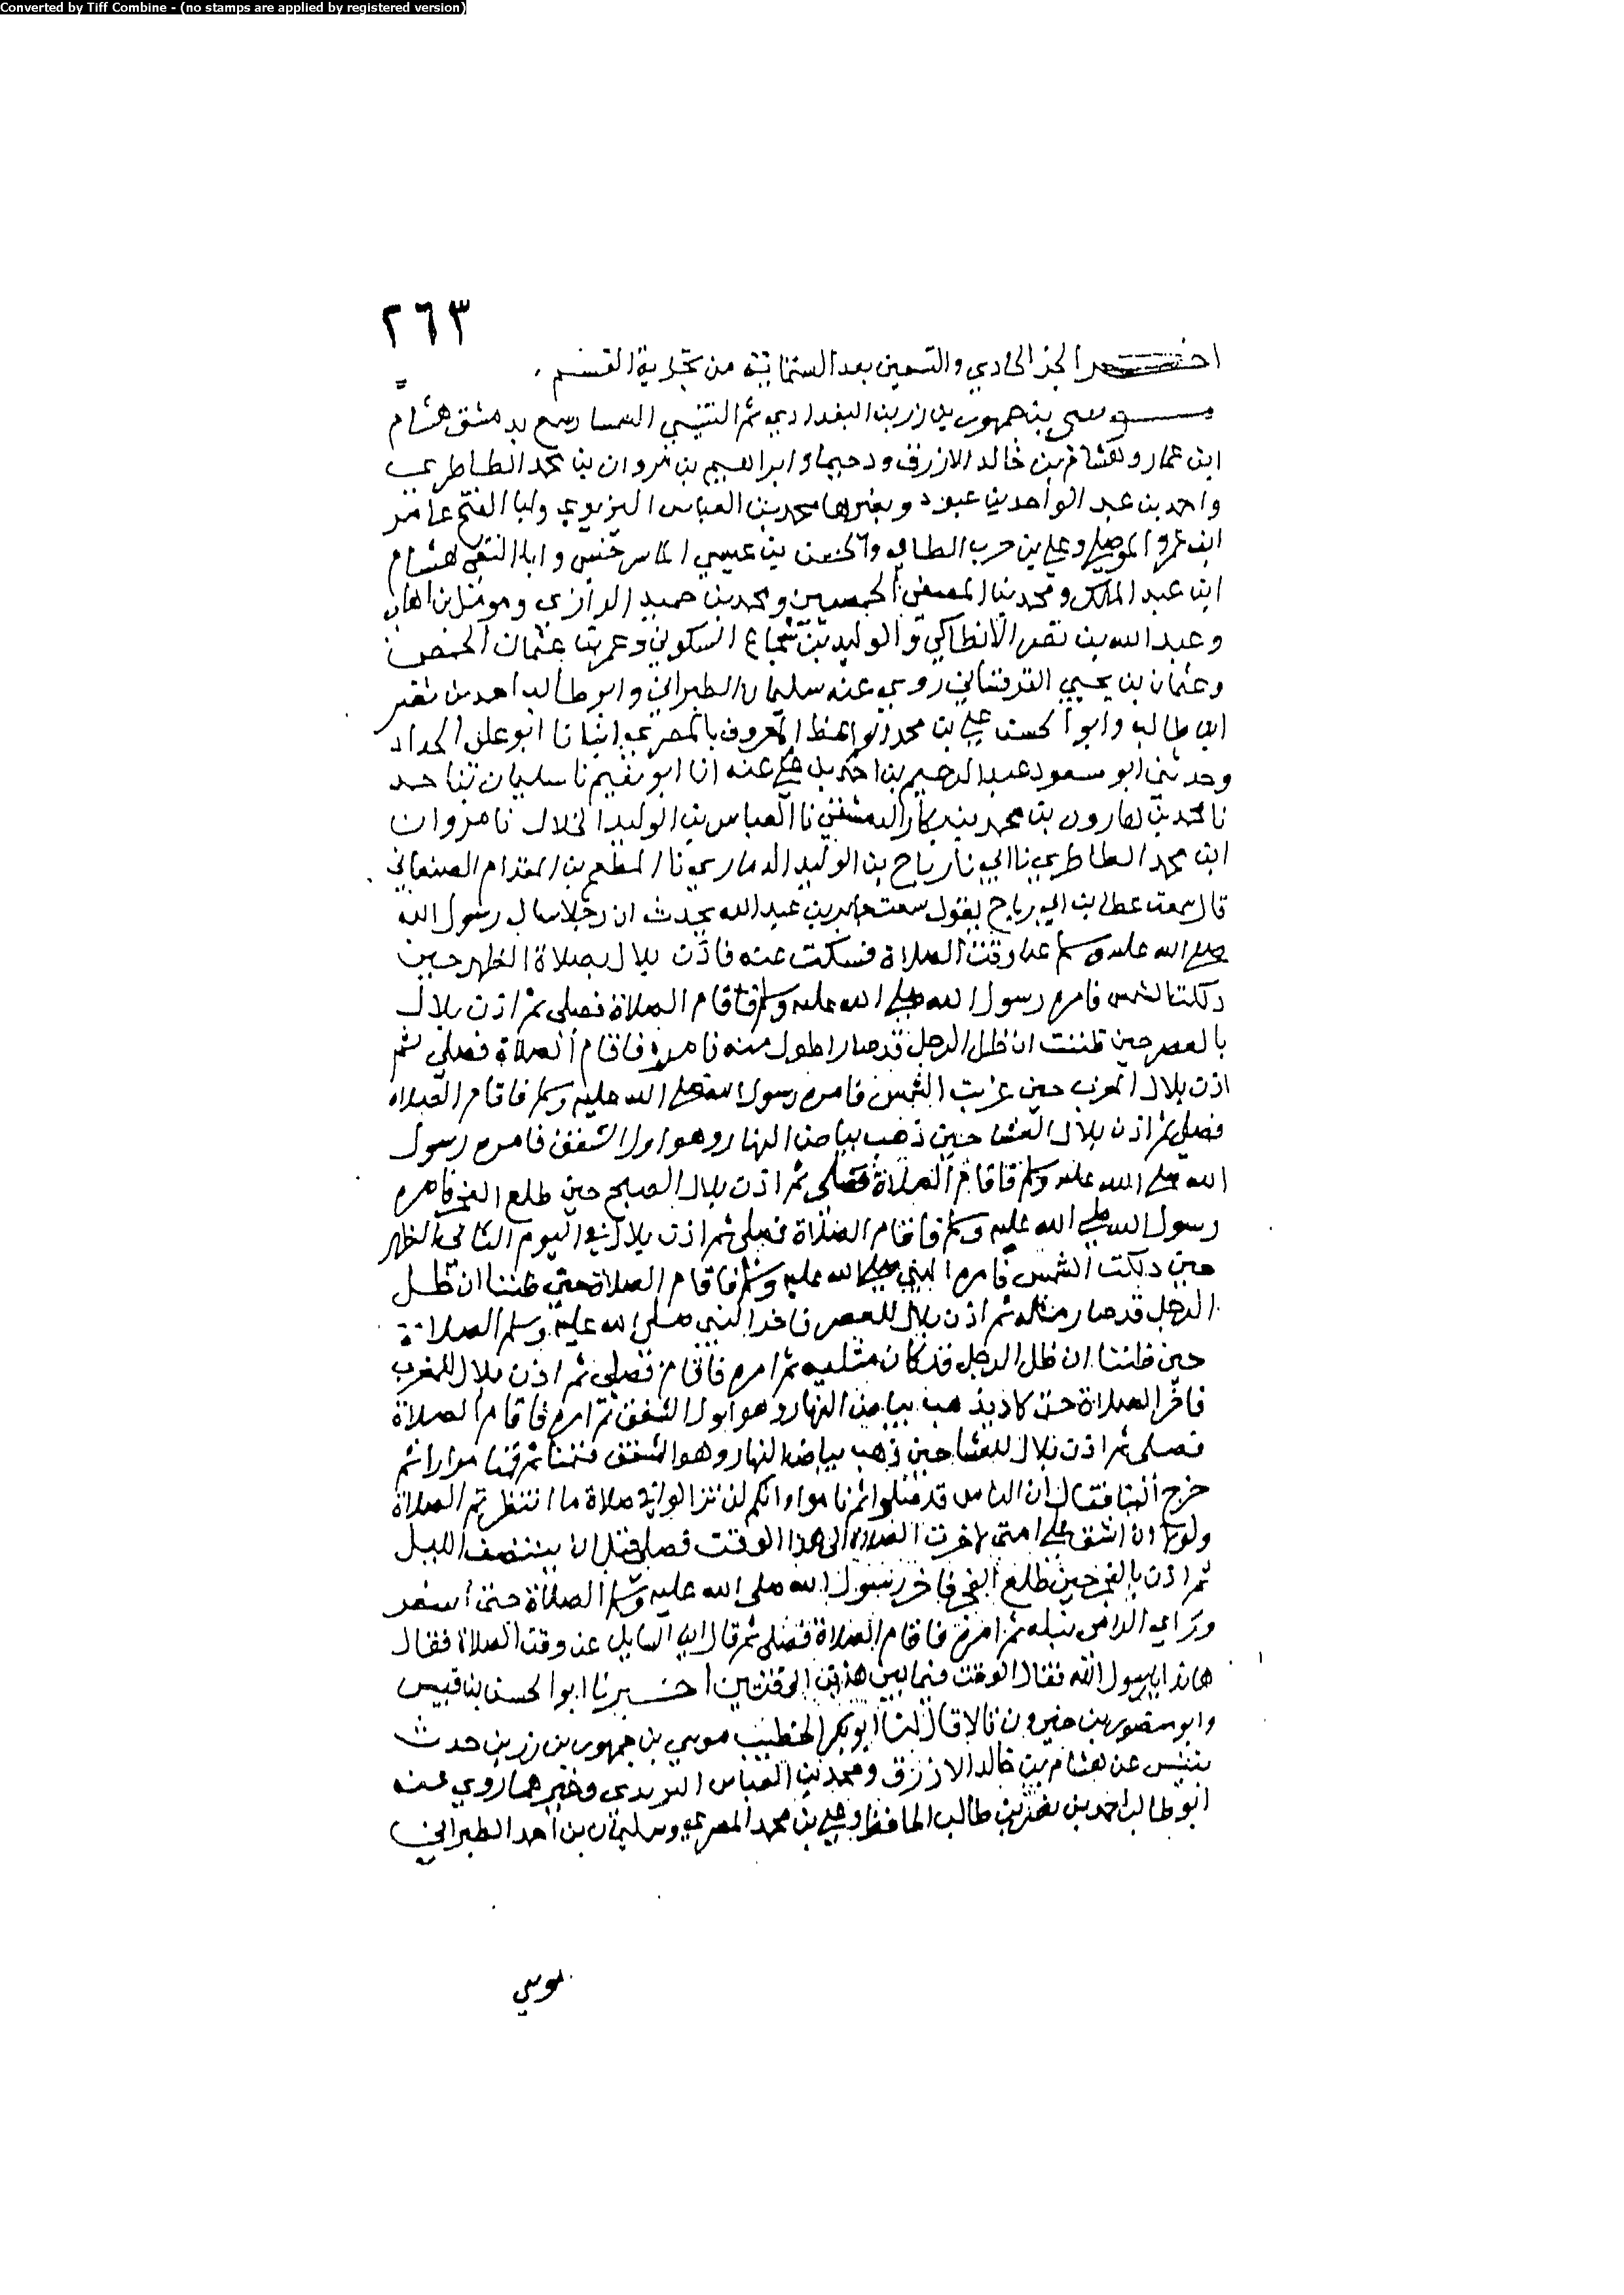 Converted by Tiff Combine - (no stamps are applied by registered version)
٢٦٣
اخــــر الجز الحادي والتسعين بعد الستماية من تجزية القسم
مــوسى بن جمهور بن زريق البغدادي ثم التنيسي السمسا رسمع بدمشق هشام
ابن عمار وهشام بن خالد الازرق ودحيما وابراهيم بن مروان بن محمد الطاطري
واحمد بن عبد الواحد بن عبود وبغيرها محمد بن العباس اليزيدي وابا الفتح عامر
ابن عمرو الموصلي وعلي بن حرب الطاي والحسن بن عيسي الماسرجسي وابا التقى هشام
ابن عبد الملك ومحمد بن المصفى الحمصيين ومحمد بن حميد الرازي ومومل بن اهاب
وعبد الله بن نصر الانطاكي والوليد بن شجاع السكوني وعمر بن عثمان الحمصي
وعثمان بن يحيي القرقساني روي عنه سليمان الطبراني وابو طالب احمد بن نصر
ابن طالب وابو الحسن علي بن محمد الواعظ المعروف بالمصري انبانا ابو علي الحداد
وحدثني ابو مسعود عبد الرحيم بن احمد بن علي عنه انا ابو نعيم نا سليمان بن احمد
نا محمد بن هارون بن محمد بن بكار الدمشقي نا العباس بن الوليد الخلال نا مروان
ابن محمد الطاطري نا ابي نا رباح بن الوليد الدماري نا المطعم بن المقدام الصنعاني
قال سمعت عطا بن ابي رباح يقول سمعت جابر بن عبد الله يحدث ان رجلا سال رسول الله
صلى الله عليه وسلم عن وقت الصلاة فسكت عنه فاذن بلال بصلاة الظهر حين
دلكت الشمس فامره رسول الله صلى الله عليه وسلم فاقام الصلاة فصلى ثم اذن بلال
بالعصر حين ظننت ان ظل الرجل قد صار اطول منه فامره فاقام الصلاة فصلى ثم
اذن بلال المغرب حين غربت الشمس فامره رسول الله صلى الله عليه وسلم فاقام الصلاه
فصلى ثم اذن بلال العشا حين ذهب بياض النهار وهو اول الشفق فامره رسول
الله صلى الله عليه وسلم فاقام الصلاة فصلى ثم اذن بلال الصبح حين طلع الفجر فامره
رسول الله صلى الله عليه وسلم فاقام الصلاة فصلى ثم اذن بلال في اليوم الثاني الظهر
حين دلكت الشمس فامره النبي صلى الله عليه وسلم فاقام الصلاة حتى ظننا ان ظل
الرجل قد صار مثله ثم اذن بلال للعصر فاخر النبي صلى الله عليه وسلم الصلاة
حين ظننا ان ظل الرجل قد كان مثليه ثم امره فاقام فصلى ثم اذن بلال للمغرب
فاخر الصلاة حتى كاد يذهب بياض النهار وهو اول الشفق ثم امره فاقام الصلاة
فصلى ثم اذن بلال للعشا حين ذهب بياض النهار وهو الشفق فنمنا ثم قمنا مرارا ثم
خرج الينا فقال ان الناس قد صلوا ثم ناموا وانكم لن تزالوا في صلاة ما انتظرتم الصلاة
ولولا ان اشق على امتي لاخرت الصلاة الى هذا الوقت فصلى قبل ان ينتصف الليل
ثم اذن بالفجر حين طلع الفجر فاخر رسول الله صلى الله عليه وسلم الصلاة حتى اسفر
وراي الرامي نبله ثم امره فاقام الصلاة فصلى ثم قال اين السايل عن وقت الصلاة فقال
هانذا يا رسول الله فقال الوقت فيما بين هذين الوقتين اخــبرنا ابو الحسن بن قبيس
وابو منصور بن خيرون قالا قال لنا ابو بكر الخطيب موسي بن جمهور بن زريق حدث
بتنيس عن هشام بن خالد الازرق ومحمد بن العباس اليزيدي وغيرهما روي عنه
ابو طالب احمد بن نصر بن طالب الحافظ وعلي بن محمد المصري وسليمان بن احمد الطبراني
موسي